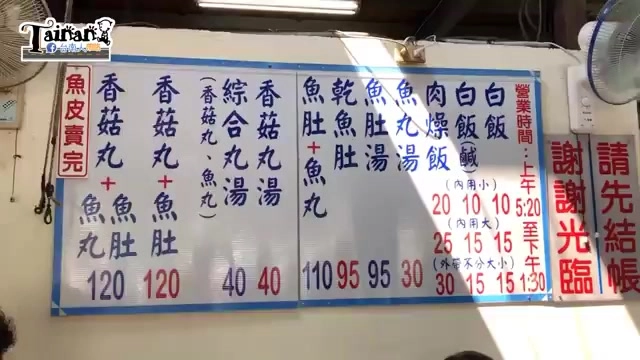 Tainan
台南人
請先結帳
謝謝光臨
營業時間:上午5:20至下午1:30
白飯
(內用小)
10
(內用大)
15
(外帶不分大小)
15
白飯(鹹)
10
15
15
肉燥飯
20
25
30
魚丸湯
30
魚肚湯
95
乾魚肚
95
魚肚+魚丸
110
香菇丸湯
40
綜合丸湯
(香菇丸、魚丸)
40
香菇丸+魚肚
120
香菇丸+魚肚魚丸
120
魚皮賣完